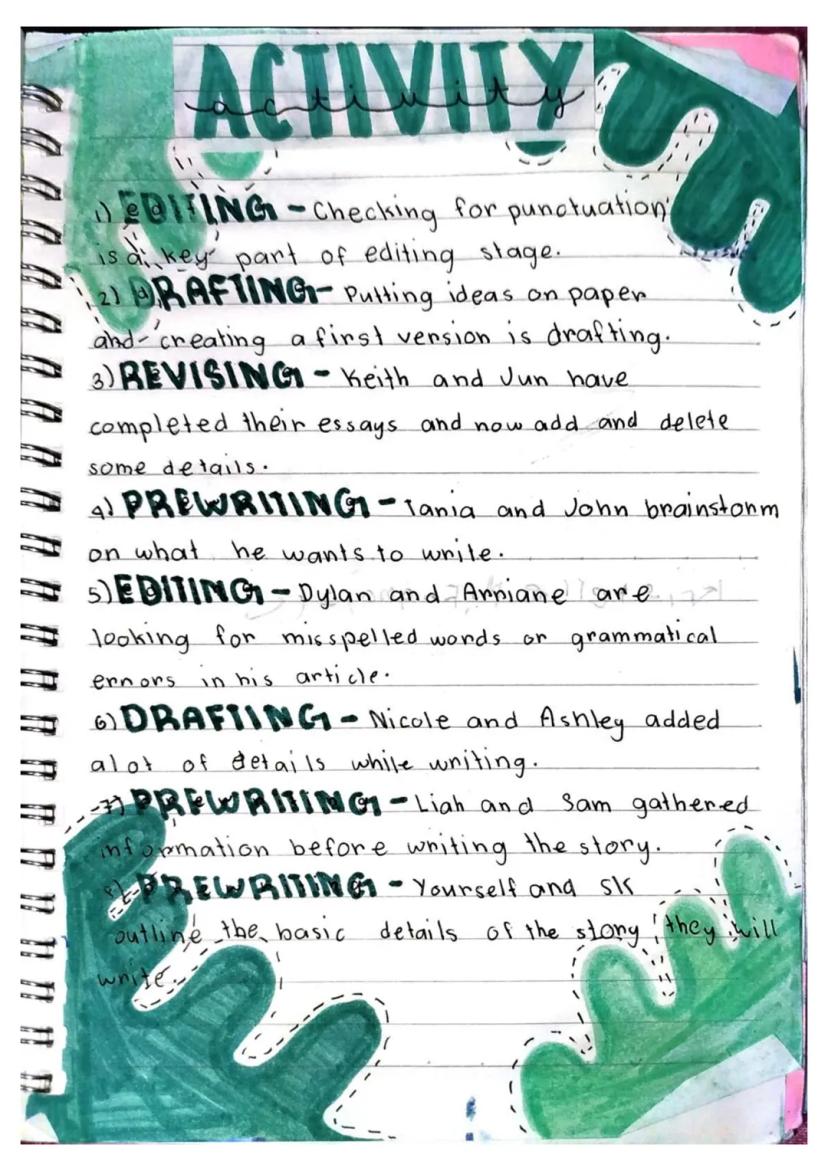 ACTIVITY
activity
1) EDITING - Checking for punctuation
is a key part of editing stage.
2) DRAFTING - Putting ideas on paper
and creating a first version is drafting.
3) REVISING - Keith and Jun have
completed their essays and now add and delete
some details.
4) PREWRITING - Tania and John brainstorm
on what he wants to write.
5) EDITING - Dylan and Arriane are
looking for misspelled words or grammatical
errors in his article.
6) DRAFTING - Nicole and Ashley added
alot of details while writing.
7) PREWRITING - Liah and Sam gathered
information before writing the story.
8) PREWRITING - Yourself and SK
outline the basic details of the story they will
write.